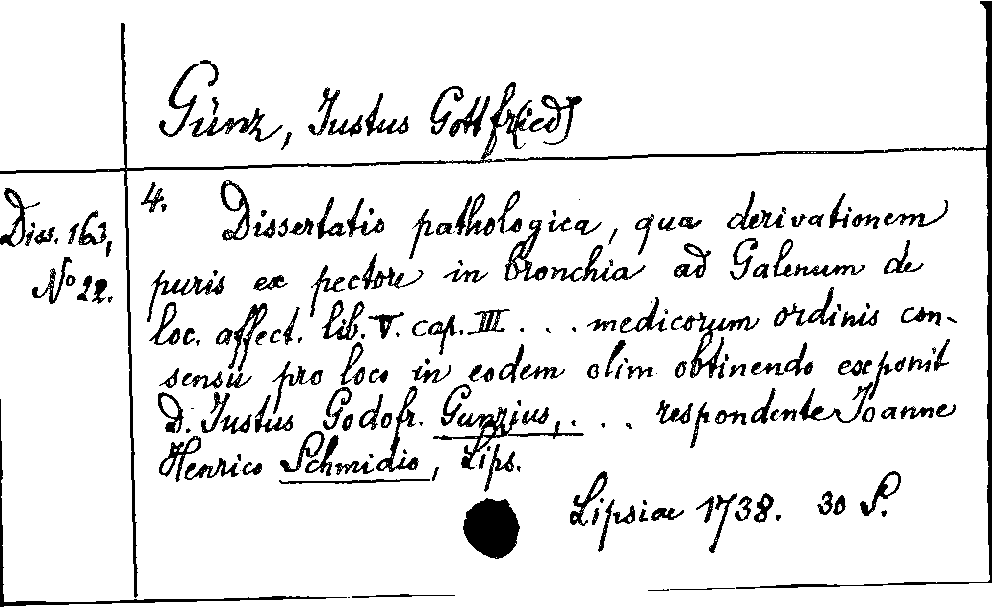 Günz, Iustus Gottfr[ied]
Diss. 163,
No 22.
4. Dissertatio pathologica, qua derivationem
puris ex pectore in bronchia ad Galenum de
loc. affect. lib. V. cap. III . . . medicorum ordinis con-
sensu pro loco in eodem olim obtinendo exponit
D. Iustus Godofr. Gunzius, . . . respondente Ioanne
Henrico Schmidio, Lips.
Lipsiae 1738. 30 S.